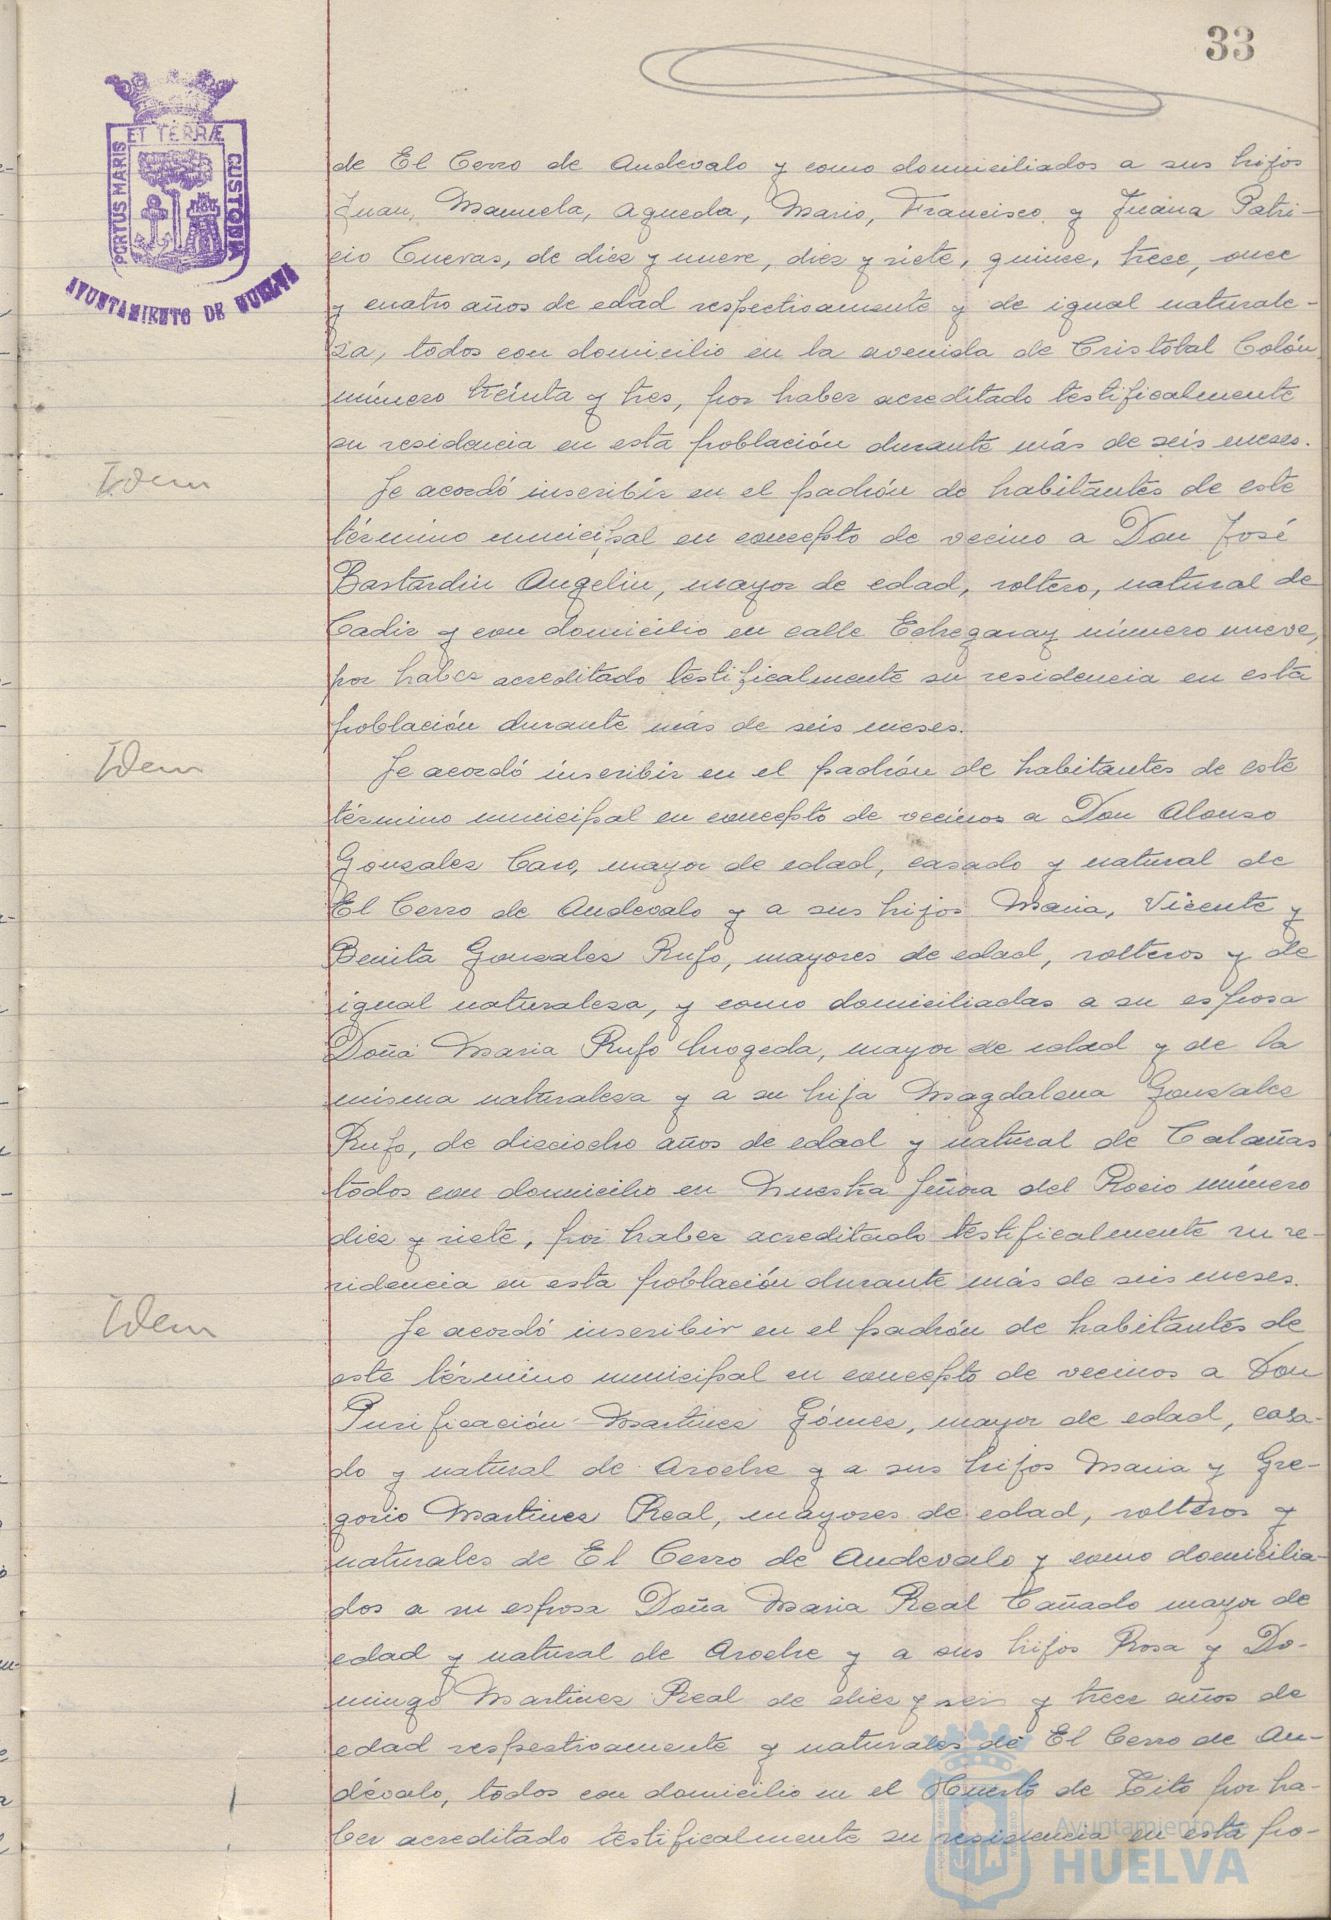 33
PORTUS MARIS ET TERRÆ CUSTODIA
AYUNTAMIENTO DE HUELVA
de El Cerro de Andevalo y como domiciliados a sus hijos
Juan, Manuela, Agueda, Mario, Francisco y Juana Patri-
cio Cuevas, de diez y nueve, diez y siete, quince, trece, once
y cuatro años de edad respectivamente y de igual naturale-
za, todos con domicilio en la avenida de Cristóbal Colón
número treinta y tres, por haber acreditado testificalmente
su residencia en esta población durante más de seis meses.
Idem
Se acordó inscribir en el padrón de habitantes de este
término municipal en concepto de vecino a Don José
Bastardin Angelin, mayor de edad, soltero, natural de
Cadiz y con domicilio en calle Echegaray número nueve,
por haber acreditado testificalmente su residencia en esta
población durante más de seis meses.
Idem
Se acordó inscribir en el padrón de habitantes de este
término municipal en concepto de vecinos a Don Alonso
Gonzalez Caro, mayor de edad, casado y natural de
El Cerro de Andevalo y a sus hijos Maria, Vicente y
Benita Gonzalez Rufo, mayores de edad, solteros y de
igual naturaleza, y como domiciliadas a su esposa
Doña Maria Rufo mayor de edad y de la
misma naturaleza y a su hija Magdalena Gonzalez
Rufo, de dieciocho años de edad y natural de Calañas
todos con domicilio en Nuestra Señora del Rocio número
diez y siete, por haber acreditado testificalmente su re-
sidencia en esta población durante más de seis meses.
Idem
Se acordó inscribir en el padrón de habitantes de
este término municipal en concepto de vecinos a Don
Purificación Martinez Gómez, mayor de edad, casa-
do y natural de Aroche y a sus hijos Maria y Gre-
gorio Martinez Real, mayores de edad, solteros y
naturales de El Cerro de Andevalo y como domicilia-
dos a su esposa Doña Maria Real Cañado mayor de
edad y natural de Aroche y a sus hijos Rosa y Do-
mingo Martinez Real de diez y seis y trece años de
edad respectivamente y naturales de El Cerro de An-
dévalo, todos con domicilio en el Huerto de Tito por ha-
ber acreditado testificalmente su residencia en esta po-
Ayuntamiento de
HUELVA